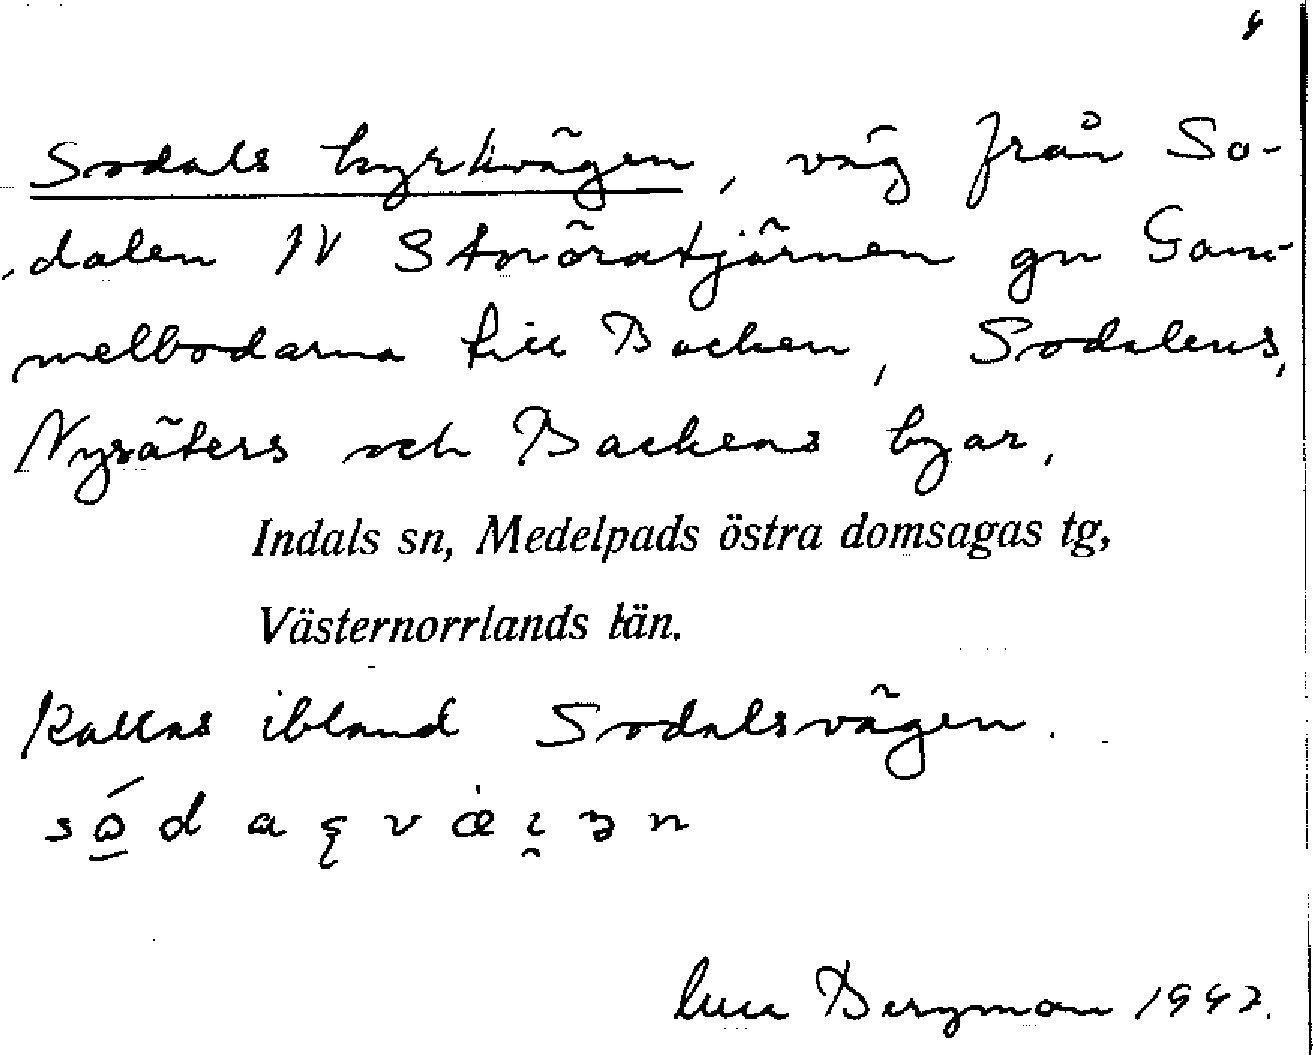 Sodals kyrkvägen, väg från So-
dalen NV Storöratjärnen gn Gam-
melbodarna till Backen, Sodalens,
Nysäters och Backens byar,
Indals sn, Medelpads östra domsagas tg,
Västernorrlands län.
Kallas ibland Sodalsvägen.
Bergman